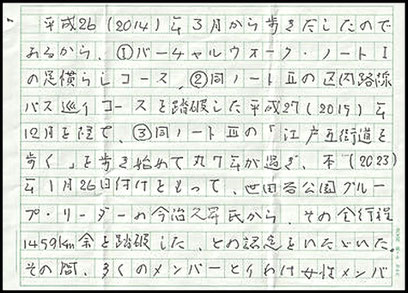 平成26(2014)年3月から歩きだしたので
あるから、①バーチャルウオーク・ノートⅠ
の足慣らしコース、②同ノートⅡの区内路線
バス巡りコースを踏破した平成27(2015)年
12月を経て、③同ノートⅢの「江戸五街道を
歩く」を歩き始めて丸7年が過ぎ、本(2023)
年1月26日付けをもって、世田谷公園グルー
プ・リーダーの今治久昇氏から、その全行程
1459km余を踏破した、との認定をいただいた。
その間、多くのメンバーとりわけ女性メンバ